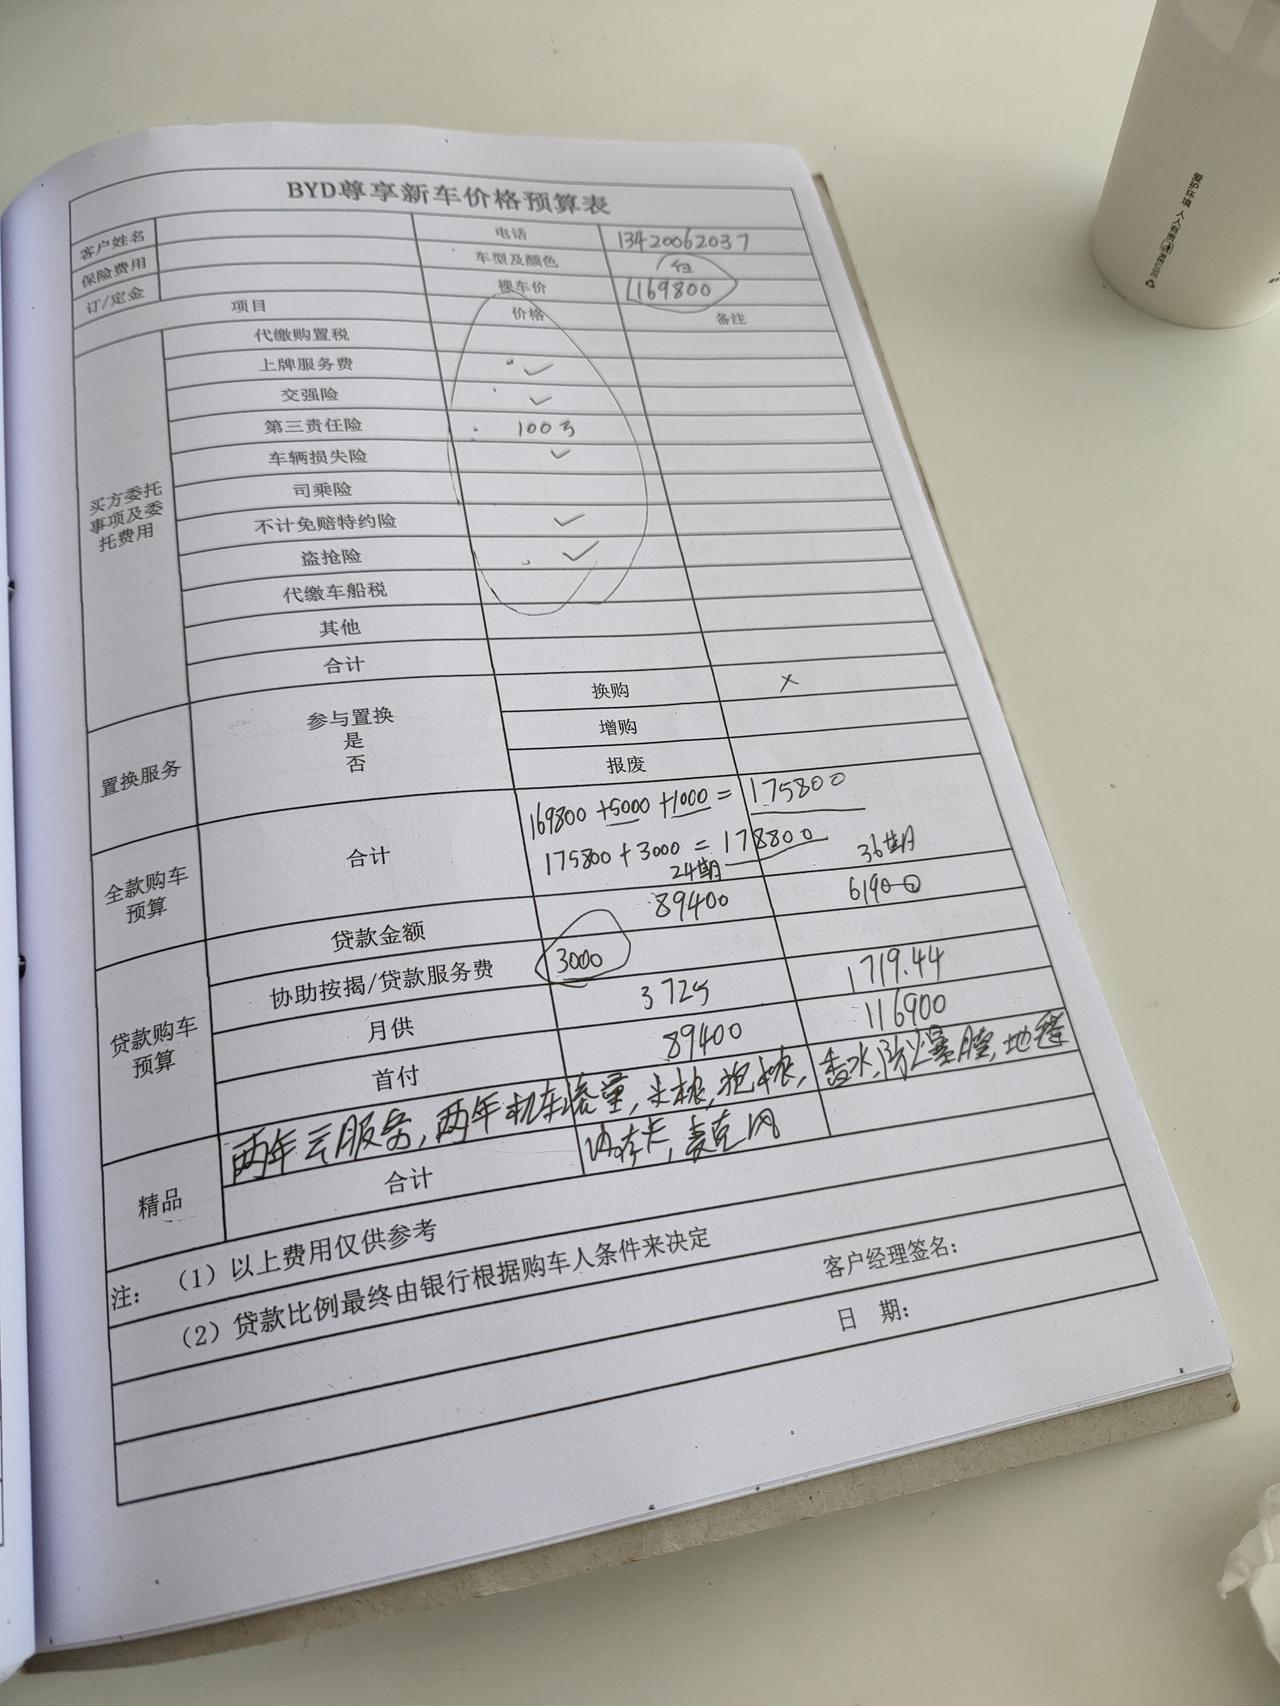 BYD尊享新车价格预算表
客户姓名 电话 13420062037
保险费用 车型及颜色 白
订/定金 裸车价 169800
项目 价格 备注
买方委托事项及委托费用
代缴购置税
上牌服务费 ✓
交强险 ✓
第三责任险 100万
车辆损失险 ✓
司乘险
不计免赔特约险 ✓
盗抢险 ✓
代缴车船税
其他
合计
置换服务 参与置换 是 否
换购 ×
增购
报废
全款购车预算 合计
169800+5000+1000=175800
175800+3000=178800
24期 36期
贷款购车预算
贷款金额 89400 61900
协助按揭/贷款服务费 3000
月供 3725 1719.44
首付 89400 116900
精品
两年云服务,两年机车流量,头枕,抱枕,香水,防爆膜,地毯
内存卡,麦克风
合计
注: (1)以上费用仅供参考
(2)贷款比例最终由银行根据购车人条件来决定
客户经理签名:
日 期:
爱护环境 人人有责